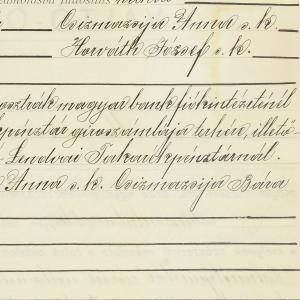 Csizmazsija Anna s. k.
Horváth József s. k.
osztrák magyar bank fiókintézeténél
pénztár giroszámlája terhére, illető-
Lendvai Takarékpénztárnál.
Anna s. k. Csizmazsija Bára